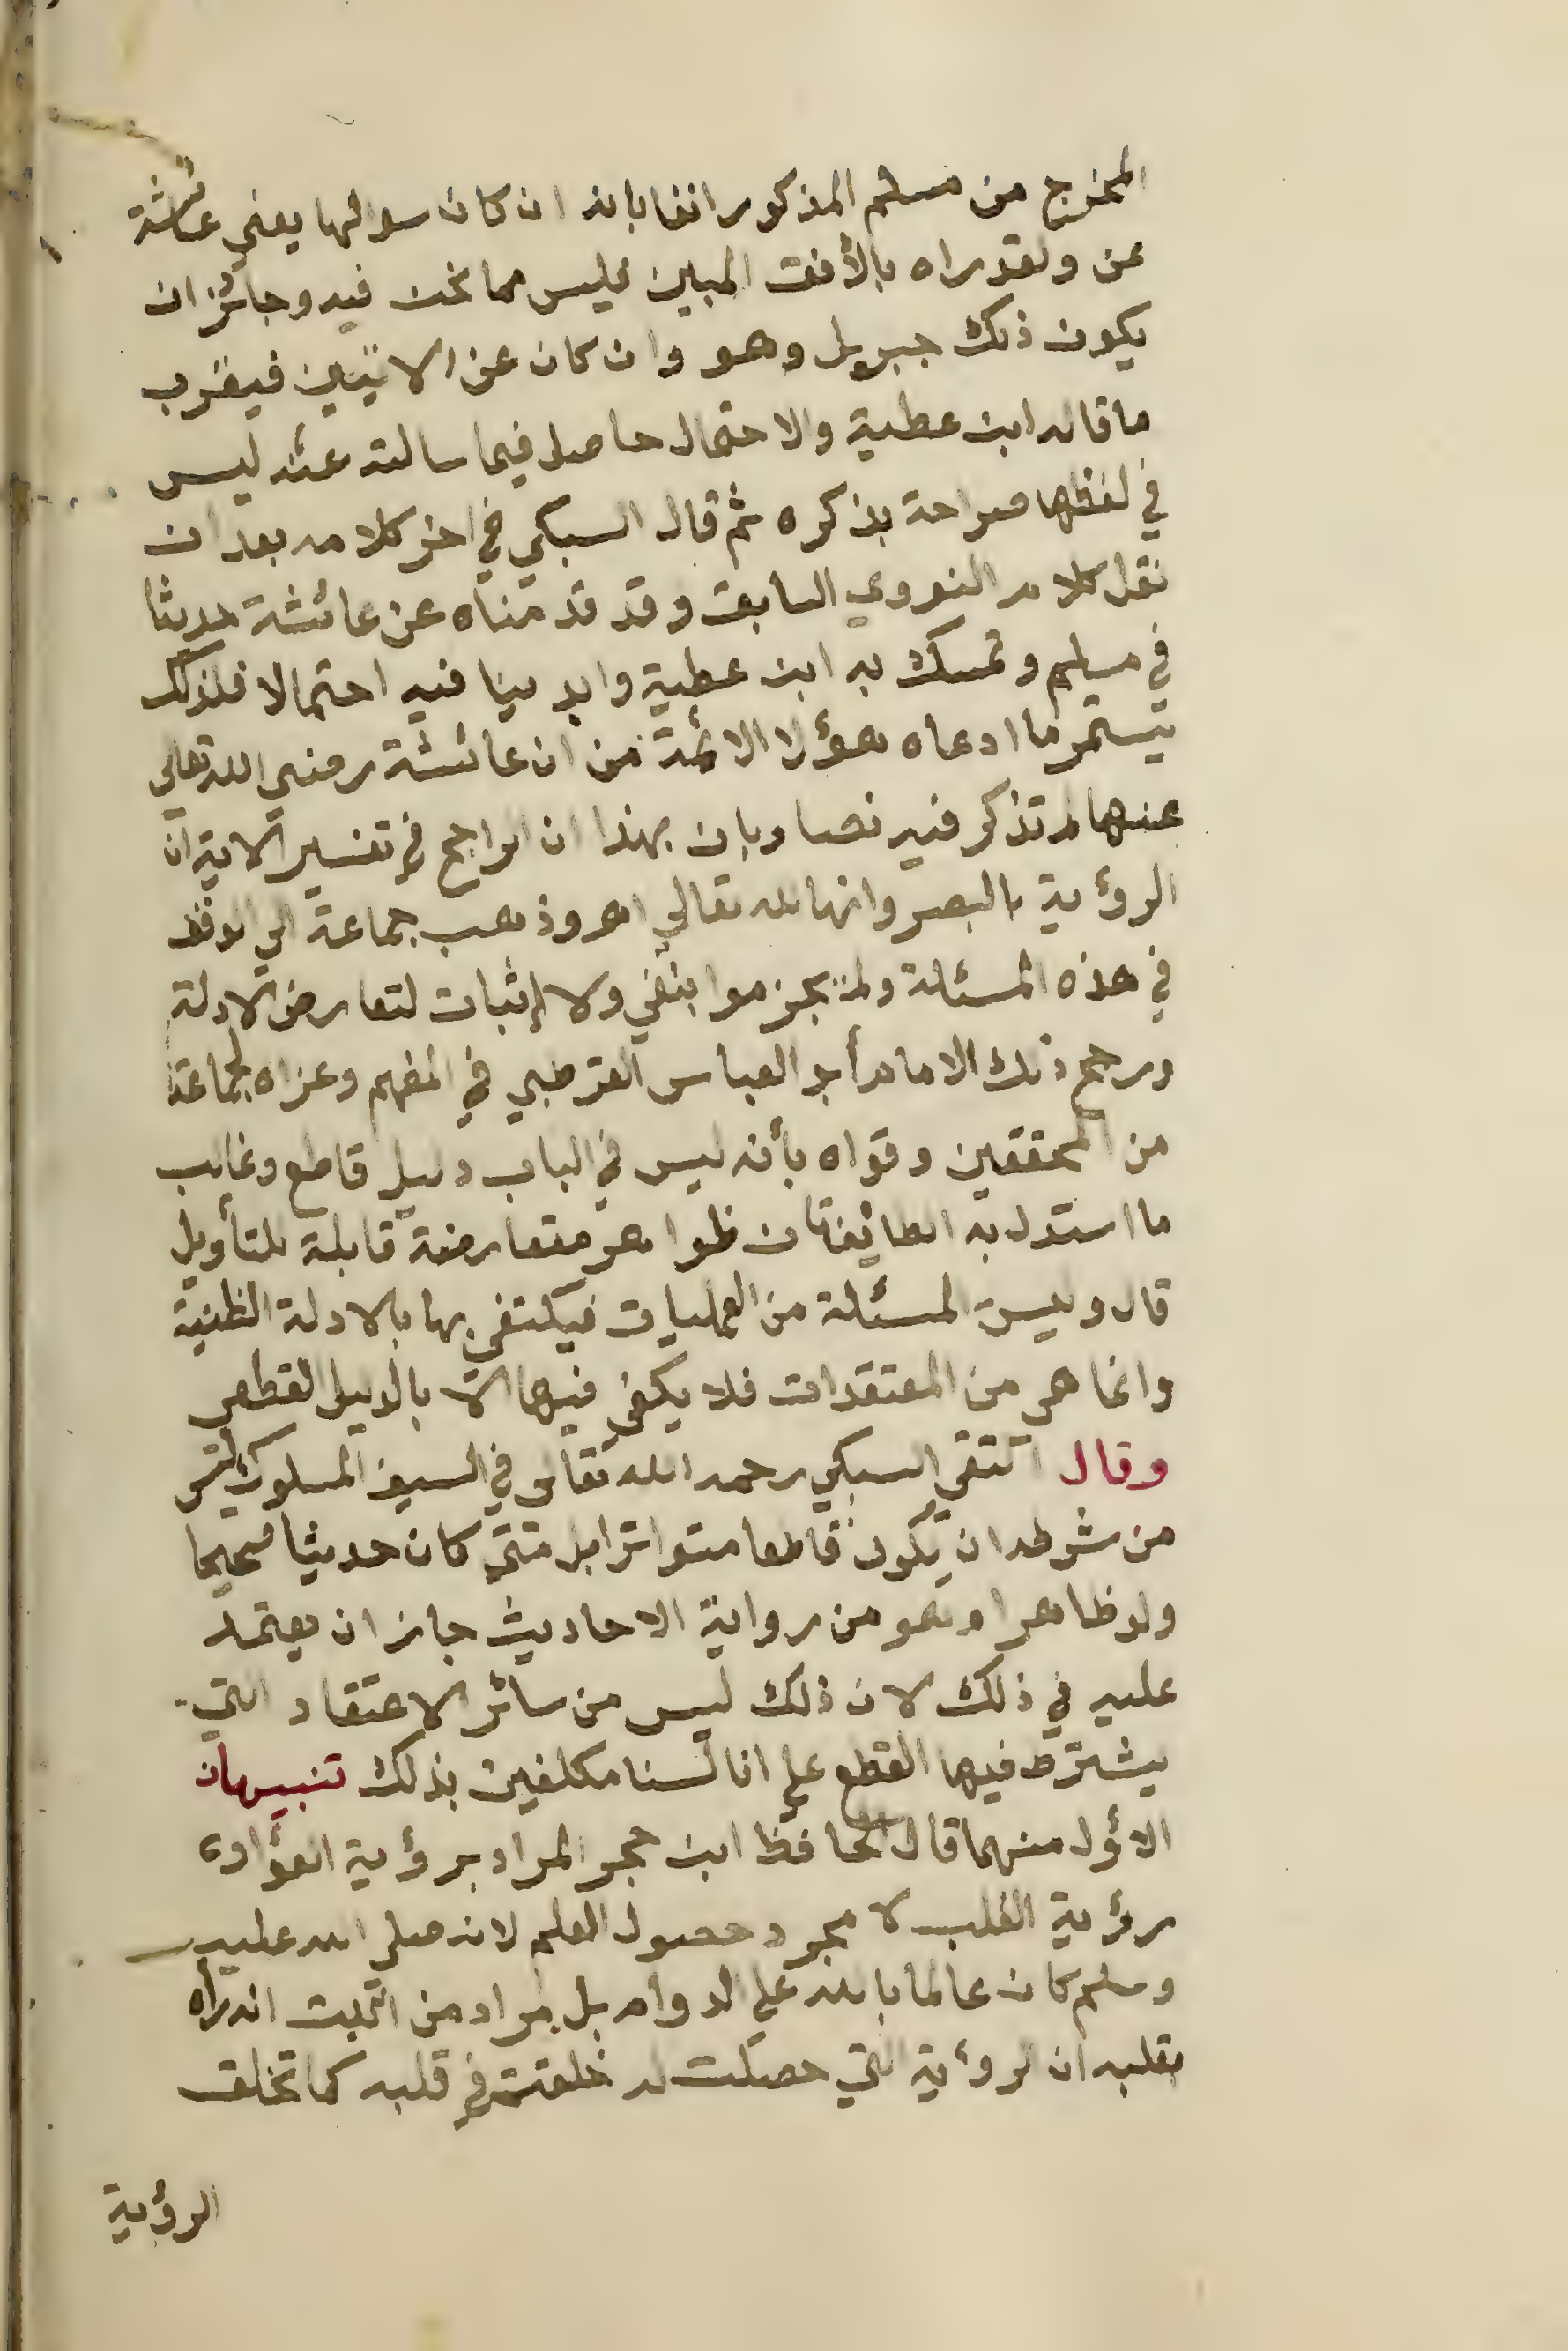 المخرج من مسلم المذكور انفا بانه ان كان سوالها يعني عائشة
عن ولقد راه بالأفق المبين فليس مما نحن فيه وجائز ان
يكون ذلك جبريل وهو وان كان عن الاثنين فيقرب
ما قاله ابن عطية والاحتمال حاصل فيما سالته عنه ليس
في لفظها صراحة بذكره ثم قال السبكي في اخر كلامه بعد ان
نقل كلام النووي السابق وقد قدمناه عن عائشة حديثا
في مسلم وتمسك به ابن عطية وابدينا فيه احتمالا فلذلك
يستمر ما ادعاه هؤلا الائمة من ان عائشة رضي الله تعالي
عنها لم تذكر فيه نصا وبان بهذا ان الراجح في تفسير الاية ان
الرؤية بالبصر وانها لله تعالي اهـ وذهب جماعة الي الوقف
في هذه المسئلة ولم يجزموا بنفي ولا إثبات لتعارض الادلة
ورجح ذلك الامام أبو العباس القرطبي في المفهم وعزاه لجماعة
من المحققين وقواه بأنه ليس في الباب دليل قاطع وغالب
ما استدل به الطائفتان ظواهر متعارضة قابلة للتأويل
قال وليست المسئلة من العمليات فيكتفي بها بالادلة الظنية
وانما هي من المعتقدات فلا يكفي فيها الا بالدليل القطعي
وقال التقي السبكي رحمه الله تعالي في السيف المسلول ليس
من شرطه ان يكون قاطعا متواترا بل متي كان حديثا صحيحا
ولو ظاهرا وهو من رواية الاحاديث جاز ان يعتمد
عليه في ذلك لان ذلك ليس من سائر الاعتقاد التي
يشترط فيها القطع علي انا لسنا مكلفين بذلك تنبيهان
الاؤل منهما قال الحافظ ابن حجر المراد برؤية الفؤاد
رؤية القلب لا مجرد حصول العلم لانه صلي الله عليه
وسلم كان عالما بالله علي الدوام بل مراد من اثبت انه راه
بقلبه ان الرؤية التي حصلت له خلقت في قلبه كما تخلق
الرؤية